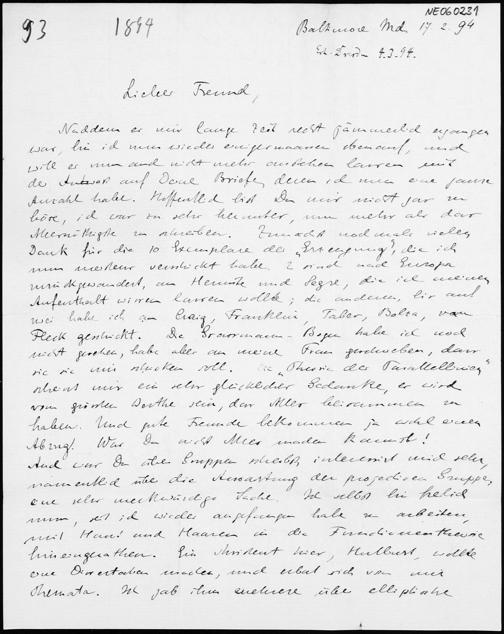 NE060231
93 1894 Baltimore Md 17.2.94
Erh. 4.3.94.
Lieber Freund,
Nachdem es mir lange Zeit recht jämmerlich ergangen
war, bin ich nun wieder einigermaassen obenauf, und
will es nun auch nicht mehr anstehen lassen mit
der Antwort auf Deine Briefe, deren ich nun eine ganze
Anzahl habe. Hoffentlich bist Du mir nicht gar zu
böse, ich war zu sehr herunter, um mehr als das
Allernöthigste zu schreiben. Zunächst nochmals vielen
Dank für die 10 Exemplare der „Erzeugung", die ich
nun meistens verschickt habe. 2 sind nach Europa
zurückgewandert, an und Segre, die ich meinen
Aufenthalt wissen lassen wollte; die anderen, bis auf
zwei habe ich an Craig, Franklin, Taber, Bolza, vom
Fleck geschickt. Die Grassmann-Bogen habe ich noch
nicht gesehen, habe aber an meine Frau geschrieben, dass
sie sie mir schicken soll. Die „Theorie der Parallellinien"
scheint mir ein sehr glücklicher Gedanke, es wird
vom grössten Werthe sein, das Alles beisammen zu
haben. Und gute Freunde bekommen ja wohl einen
Abzug! Was Du nicht Alles machen kannst!
Auch was Du über Gruppen schreibst, interessirt mich sehr,
namentlich über die Ausartung der projectiven Gruppe,
eine sehr merkwürdige Sache. Ich selbst bin
nun, seit ich wieder angefangen habe zu arbeiten,
mit Haut und Haaren in die Functionentheorie
hineingerathen. Ein Student hier, Hulburt, wollte
eine Dissertation machen, und erbat sich von mir
Themata. Ich gab ihm mehrere über elliptische